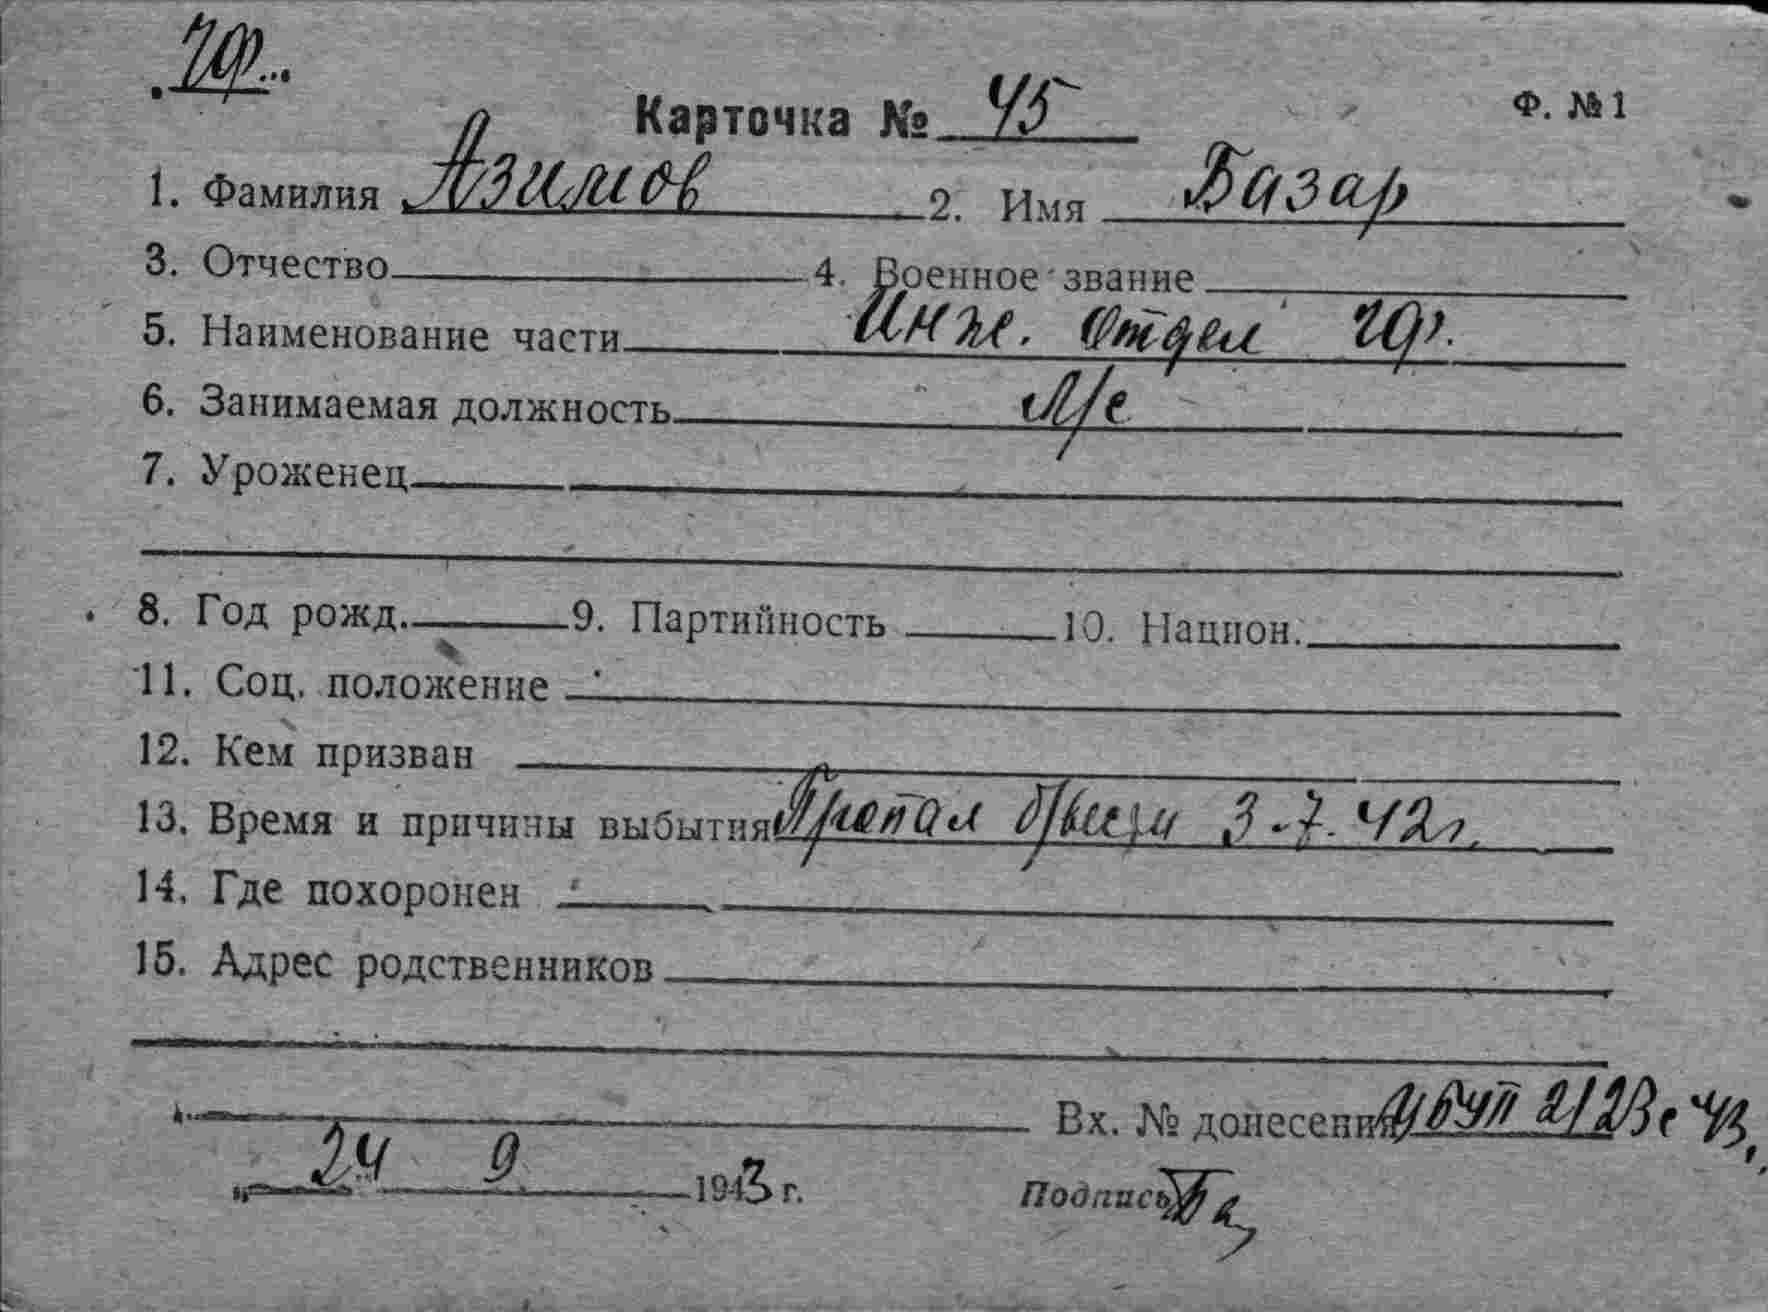 ЧФ...
Карточка № 45 Ф. № 1
1. Фамилия Азимов 2. Имя Базар
3. Отчество 4. Военное звание
5. Наименование части Инж. отдел ЧФ.
6. Занимаемая должность Л/с
7. Уроженец
8. Год рожд. 9. Партийность 10. Национ.
11. Соц. положение
12. Кем призван
13. Время и причины выбытия Пропал б/вести 3.7.42г.
14. Где похоронен
15. Адрес родственников
Вх. № донесения УБУП 2123с 43.
„ 24 9 1943 г. Подпись